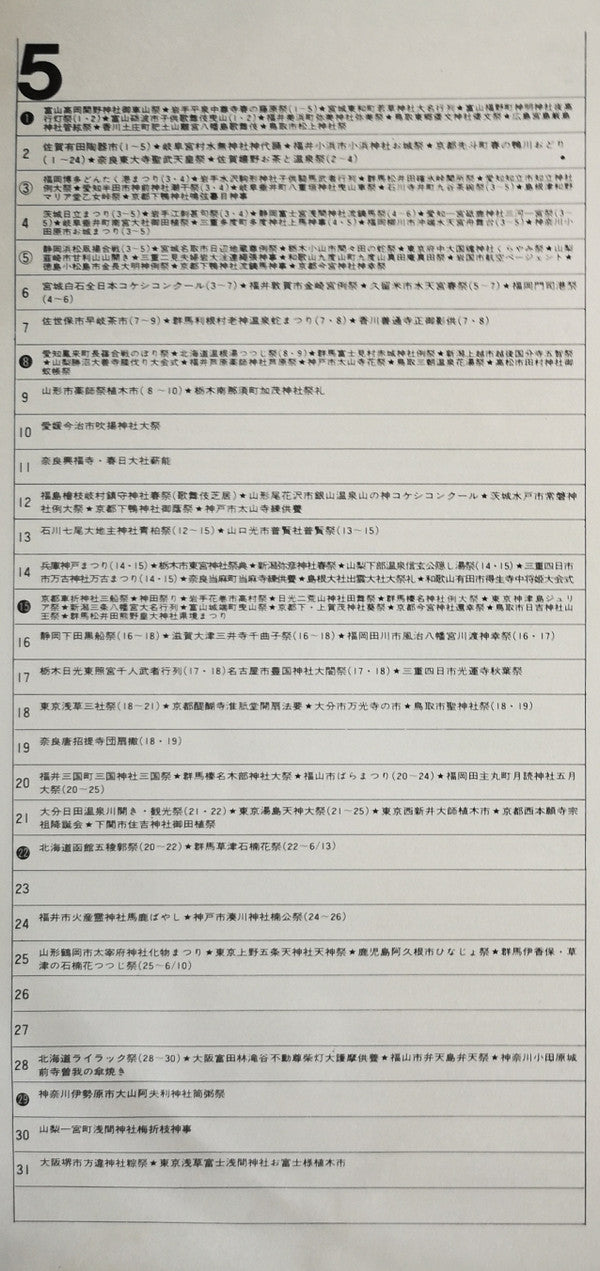 5
❶ 富山高岡関野神社御車山祭★岩手平泉中尊寺春の藤原祭(1~5)★宮城東和町若草神社大名行列★富山福野町神明神社夜高
行灯祭(1・2)★富山砺波市子供歌舞伎曳山(1・2)★福井美浜町弥美神社弥美祭★鳥取東郷倭文神社倭文祭★広島宮島厳島
神社管絃祭★香川土庄町肥土山離宮八幡農歌舞伎★鳥取市松上神社祭
2 佐賀有田陶器市(1~5)★岐阜宮村水無神社神代踊★福井小浜市小浜神社お城祭★京都先斗町春の鴨川おどり
(1~24)★奈良東大寺聖武天皇祭★佐賀嬉野お茶と温泉祭(2~4)
③ 福岡博多どんたく港まつり(3、4)★岩手水沢駒形神社子供騎馬武者行列★群馬松井田碓氷峠関所祭★愛知知立市知立神社
例大祭★愛知半田市神前神社潮干祭(3、4)★岐阜垂井町八重垣神社曳山車祭★石川寺井町九谷茶碗祭(3~5)★島根津和野
マリア堂乙女峠祭★京都下鴨神社鳴弦蟇目神事
4 茨城日立まつり(3~5)★岩手江刺甚句祭(3、4)★静岡富士宮浅間神社流鏑馬(4~6)★愛知一宮砥鹿神社三河一宮祭(3~
5)★岐阜垂井町南宮大社御田植祭★三重多度町多度神社上馬神事(4、5)★福岡柳川市沖端水天宮舟舞台(3~5)★神奈川小
田原市お城まつり(3~5)
⑤ 静岡浜松凧揚合戦(3~5)★宮城名取市日辺地蔵尊例祭★栃木小山市間々田の蛇祭★東京府中大国魂神社くらやみ祭★山梨
韮崎市甘利山山開き★三重二見夫婦岩大注連縄張神事★和歌山九度山町九度山真田庵真田祭★岩国市航空ページェント★
徳島小松島市金長大明神例祭★京都下鴨神社流鏑馬神事★京都今宮神社神幸祭
6 宮城白石全日本コケシコンクール(3~7)★福井敦賀市金崎宮例祭★久留米市水天宮春祭(5~7)★福岡門司港祭
(4~6)
7 佐世保市早岐茶市(7~9)★群馬利根村老神温泉蛇まつり(7、8)★香川善通寺正御影供(7、8)
❽ 愛知鳳来町長篠合戦のぼり祭★北海道恵根湯つつじ祭(8・9)★群馬富士見村赤城神社例祭★新潟上越市越後国分寺五智祭
★山梨勝沼大善寺籠伐り大会式★福井芦原薬師神社芦原祭★神戸市太山寺花祭★鳥取三朝温泉花湯祭★高松市田村神社御
蚊帳祭
9 山形市薬師祭植木市(8~10)★栃木南那須町加茂神社祭礼
10 愛媛今治市吹揚神社大祭
11 奈良興福寺・春日大社薪能
12 福島檜枝岐村鎮守神社春祭(歌舞伎芝居)★山形尾花沢市銀山温泉山の神コケシコンクール★茨城水戸市常磐神
社例大祭★京都下鴨神社御蔭祭★神戸市太山寺練供養
13 石川七尾大地主神社青柏祭(12~15)★山口光市普賢社普賢祭(13~15)
14 兵庫神戸まつり(14・15)★栃木市東宮神社祭典★新潟弥彦神社春祭★山梨下部温泉信玄公隠し湯祭(14・15)★三重四日市
市万古神社万古まつり(14・15)★奈良当麻町当麻寺練供養★島根大社出雲大社大祭礼★和歌山有田市得生寺中将姫大会式
⓯ 京都車折神社三船祭★神田祭り★岩手花巻市高村祭★日光二荒山神社田舞祭★群馬榛名神社例大祭★東京神津島ジュリ
ア祭★新潟三条八幡宮大名行列★富山城端町曳山祭★京都下・上賀茂神社葵祭★京都今宮神社還幸祭★鳥取市日吉神社山
王祭★群馬松井田熊野皇大神社県境まつり
16 静岡下田黒船祭(16~18)★滋賀大津三井寺千曲子祭(16~18)★福岡田川市風治八幡宮川渡神幸祭(16・17)
17 栃木日光東照宮千人武者行列(17・18)名古屋市豊国神社大閤祭(17・18)★三重四日市光運寺秋葉祭
18 東京浅草三社祭(18~21)★京都醍醐寺准胝堂開扇法要★大分市万光寺の市★鳥取市聖神社祭(18・19)
19 奈良唐招提寺団扇撒(18・19)
20 福井三国町三国神社三国祭★群馬榛名木部神社大祭★福山市ばらまつり(20~24)★福岡田主丸町月読神社五月
大祭(20~25)
21 大分日田温泉川開き・観光祭(21・22)★東京湯島天神大祭(21~25)★東京西新井大師植木市★京都西本願寺宗
祖降誕会★下関市住吉神社御田植祭
㉒ 北海道函館五稜郭祭(20~22)★群馬草津石楠花祭(22~6/13)
23
24 福井市火産霊神社馬鹿ばやし★神戸市湊川神社楠公祭(24~26)
25 山形鶴岡市太宰府神社化物まつり★東京上野五条天神社天神祭★鹿児島阿久根市ひなじょ祭★群馬伊香保・草
津の石楠花つつじ祭(25~6/10)
26
27
28 北海道ライラック祭(28~30)★大阪富田林滝谷不動尊柴灯大護摩供養★福山市弁天島弁天祭★神奈川小田原城
前寺曽我の傘焼き
㉙ 神奈川伊勢原市大山阿夫利神社筒粥祭
30 山梨一宮町浅間神社梅折枝神事
31 大阪堺市方違神社粽祭★東京浅草富士浅間神社お富士様植木市